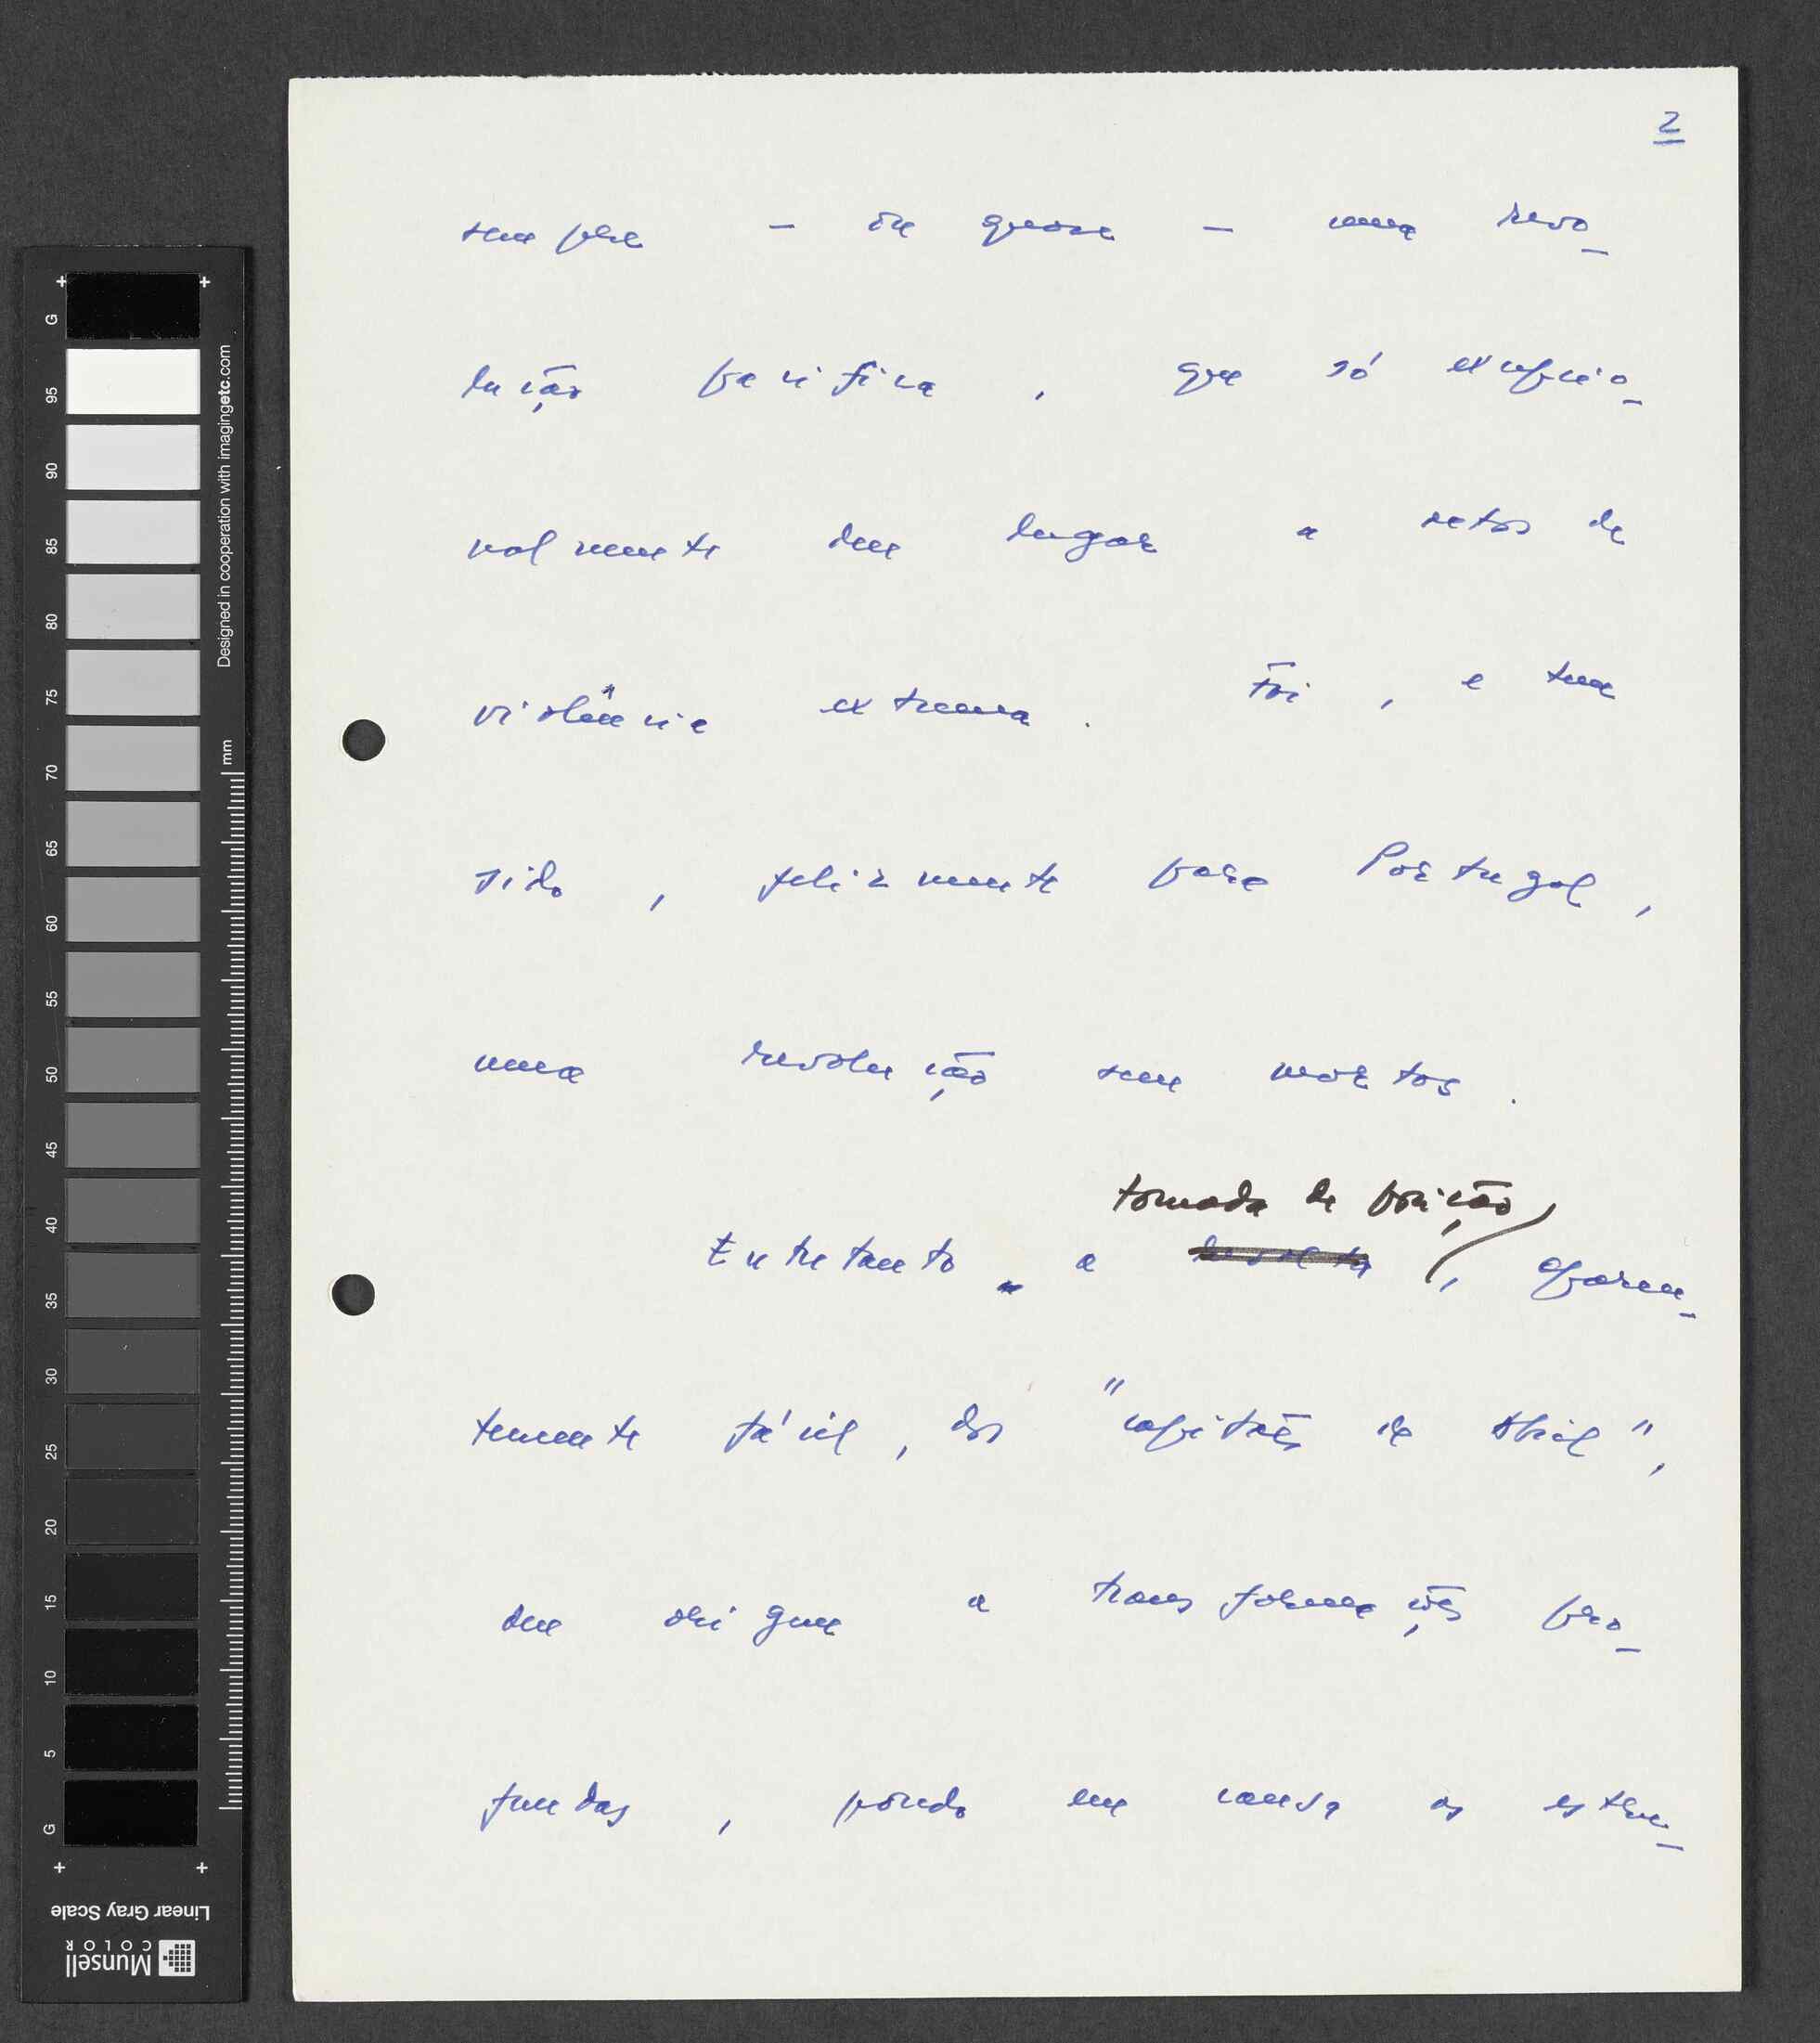 2
sempre — ou quase — uma revo-
lução pacífica, que só excepcio-
nalmente deu lugar a actos de
violência extrema. Foi, e tem
sido, felizmente para Portugal,
uma revolução sem mortos.
tomada de posição
Entretanto, a revolta, aparen-
temente fácil, dos "capitães de Abril",
deu origem a transformações pro-
fundas, pondo em causa as estru-
G 95 90 85 80 75 70 65 60 55 50 45 40 35 30 25 20 15 10 5 G
Designed in cooperation with imagingetc.com
mm
Linear Gray Scale
Munsell
COLOR